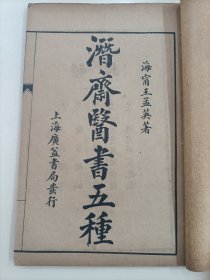 海甯王孟英著
潛齋醫書五種
上海廣益書局發行